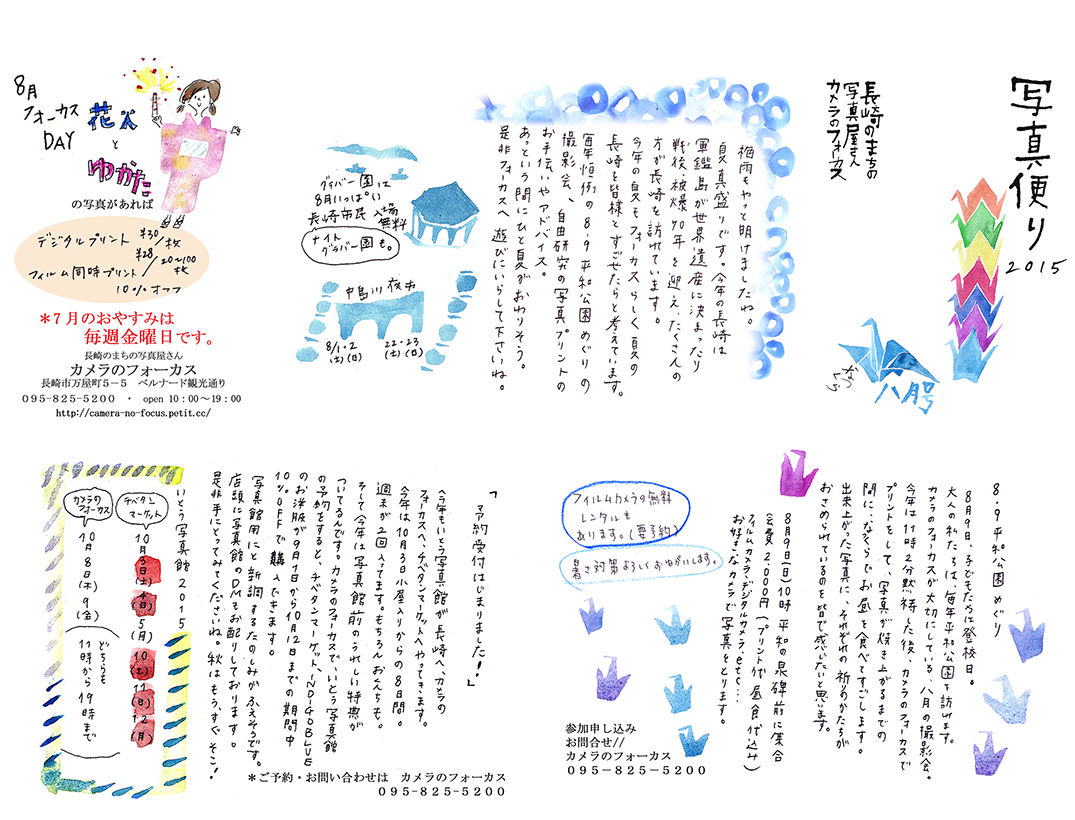 写真便り
2015
長崎のまちの
写真屋さん
カメラのフォーカス
なつくら
八月号
梅雨もやっと明けましたね。
夏真盛りです。今年の長崎は
軍艦島が世界遺産に決まったり
戦後、被爆70年を迎え、たくさんの
方が長崎を訪れています。
今年の夏もフォーカスらしく夏の
長崎を皆様とすごせたらと考えています。
毎年恒例の8・9平和公園めぐりの
撮影会、自由研究の写真プリントの
お手伝いやアドバイス。
あっという間にひと夏がおわりそう。
是非フォーカスへ遊びにいらして下さいね。
グラバー園は
8月いっぱい
長崎市民入場
無料
ナイト
グラバー園も。
中島川夜市
8/1・2
(土)(日)
22・23
(土)(日)
8月
フォーカス
DAY
花火
と
ゆかた
の写真があれば
デジタルプリント ¥30/枚
¥28/20〜100枚
フィルム同時プリント
10%オフ
＊7月のおやすみは
毎週金曜日です。
長崎のまちの写真屋さん
カメラのフォーカス
長崎市万屋町5－5 ベルナード観光通り
095-825-5200 ・ open 10：00〜19：00
http://camera-no-focus.petit.cc/
8・9平和公園めぐり
8月9日、子どもたちは登校日。
大人の私たちは、毎年平和公園を訪れます。
カメラのフォーカスが大切にしている、八月の撮影会。
今年は11時2分黙祷した後、カメラのフォーカスで
プリントをして、写真が焼き上がるまでの
間に、ならくらでお昼を食べてすごします。
出来上がった写真に、それぞれの祈りのかたちが
おさめられているのを皆で感じたいと思います。
8月9日(日)10時 平和の泉碑前に集合
会費2,000円(プリント代 昼食代込み)
フィルムカメラ、デジタルカメラ、etc...
お好きなカメラで写真をとります。
フィルムカメラの無料
レンタルも
あります。(要予約)
暑さ対策よろしくおねがいします。
参加申し込み
お問合せ//
カメラのフォーカス
095-825-5200
「予約受付はじまりました!」
今年もいとう写真館が長崎へ、カメラの
フォーカスへ、チベタンマーケットへやってきます。
今年は10月3日小屋入りからの8日間。
週末が2回入ってます。もちろんおんちも。
そして今年は写真館前のうれしい特典が
ついてるんです。カメラのフォーカスで、いとう写真館
の予約をすると、チベタンマーケット、INDIGOBLUE
のお洋服が9月1日から10月2日までの期間中
10%OFFで購入できます。
写真館用にと新調するたのしみがふえそうです。
店頭に写真館のDMもお配りしております。
是非手にとってみてくださいね。秋はもうすぐそこ!
＊ご予約・お問い合わせは カメラのフォーカス
095-825-5200
いとう写真館2015
チベタン
マーケット
10月3日(土)
4(日)
5(月)
10(土)
11(日)
12(月)
カメラの
フォーカス
10月8日(木)
9(金)
どちらも
11時から19時まで